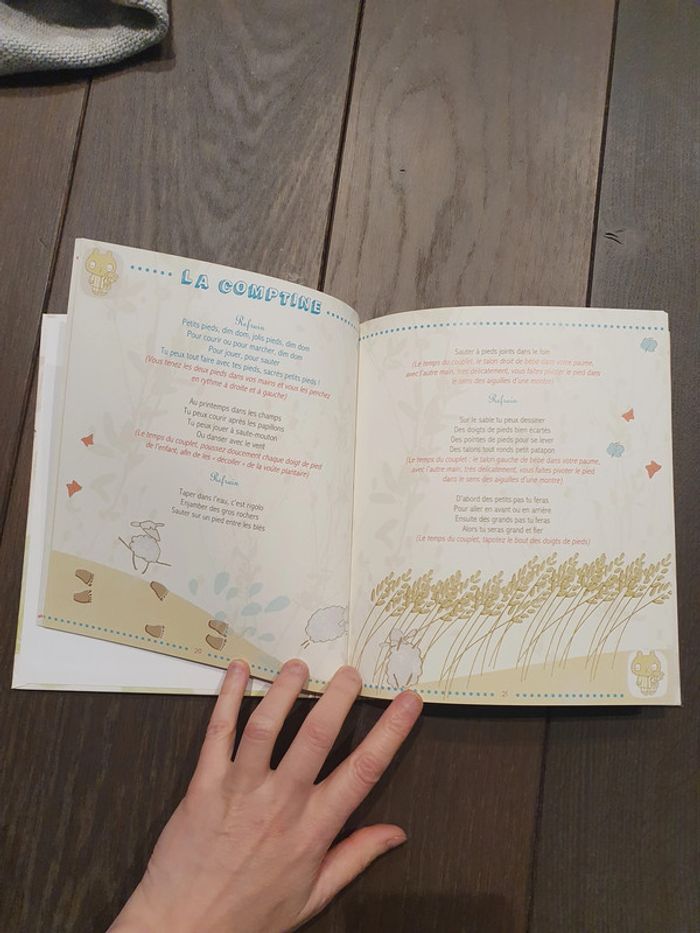 LA COMPTINE
Refrain
Petits pieds, dim dom, jolis pieds, dim dom
Pour courir ou pour marcher, dim dom
Pour jouer, pour sauter
Tu peux tout faire avec tes pieds, sacrés petits pieds !
(Vous tenez les deux pieds dans vos mains et vous les penchez
en rythme à droite et à gauche)
Au printemps dans les champs
Tu peux courir après les papillons
Tu peux jouer à saute-mouton
Ou danser avec le vent
(Le temps du couplet, poussez doucement chaque doigt de pied
de l'enfant, afin de les « décoller » de la voûte plantaire)
Refrain
Taper dans l'eau, c'est rigolo
Enjamber des gros rochers
Sauter sur un pied entre les blés
20
Sauter à pieds joints dans le foin
(Le temps du couplet, le talon droit de bébé dans votre paume,
avec l'autre main, très délicatement, vous faites pivoter le pied dans
le sens des aiguilles d'une montre)
Refrain
Sur le sable tu peux dessiner
Des doigts de pieds bien écartés
Des pointes de pieds pour se lever
Des talons tout ronds petit patapon
(Le temps du couplet : le talon gauche de bébé dans votre paume,
avec l'autre main, très délicatement, vous faites pivoter le pied
dans le sens des aiguilles d'une montre)
D'abord des petits pas tu feras
Pour aller en avant ou en arrière
Ensuite des grands pas tu feras
Alors tu seras grand et fier
(Le temps du couplet, tapotez le bout des doigts de pieds)
21